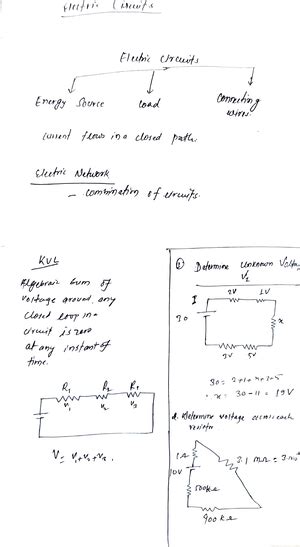 Electric Circuits
Electric circuits
Energy Source Load Connecting wires
current flows in a closed path.
Electric Network
- combination of circuits.
KVL
Algebraic Sum of
voltage around any
closed loop in a
circuit is zero
at any instant of
time.
R1 R2 R3
V1 V2 V3
V = V1+V2+V3.
Determine Unknown Voltage
V2
2V 1V
I
30
x
3V 5V
30 = 2+1+x+3+5
x = 30-11 = 19V
d. Determine voltage across each
resistor
1Ω
10V
500kΩ
3.1 mΩ =
900kΩ